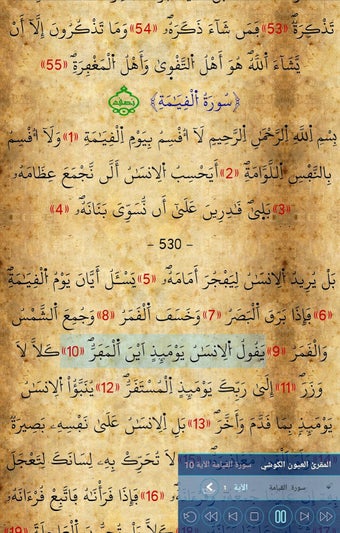 تَذْكِرَةٌ «53» فَمَن شَآءَ ذَكَرَهُۥ «54» وَمَا تَذْكُرُونَ إِلَّآ أَنْ
يَّشَآءَ اَ۬للَّهُ هُوَ أَهْلُ اُ۬لتَّقْو۪يٰ وَأَهْلُ اُ۬لْمَغْفِرَةِ «55»
﴿سُورَةُ اُ۬لْقِيَٰمَةِ﴾
بِسْمِ اِ۬للَّهِ اِ۬لرَّحْمَٰنِ اِ۬لرَّحِيمِ لَآ أُقْسِمُ بِيَوْمِ اِ۬لْقِيَٰمَةِ «1» وَلَآ أُقْسِمُ
بِالنَّفْسِ اِ۬للَّوَّامَةِ «2» أَيَحْسِبُ اُ۬لِانسَٰنُ أَلَّن نَّجْمَعَ عِظَامَهُۥ
«3» بَل۪يٰ قَٰدِرِينَ عَلَىٰٓ أَن نُّسَوِّيَ بَنَانَهُۥ «4»
- 530 -
بَلْ يُرِيدُ اُ۬لِانسَٰنُ لِيَفْجُرَ أَمَامَهُۥ «5» يَسْـَٔلُ أَيَّانَ يَوْمُ اُ۬لْقِيَٰمَةِ
«6» فَإِذَا بَرَقَ اَ۬لْبَصَرُ «7» وَخَسَفَ اَ۬لْقَمَرُ «8» وَجُمِعَ اَ۬لشَّمْسُ
وَالْقَمَرُ «9» يَقُولُ اُ۬لِانسَٰنُ يَوْمَئِذٍ اَيْنَ اَ۬لْمَفَرُّ «10» كَلَّا لَا
وَزَرَ «11» إِلَىٰ رَبِّكَ يَوْمَئِذٍ اِ۬لْمُسْتَقَرُّ «12» يُنَبَّؤُاْ اُ۬لِانسَٰنُ
يَوْمَئِذِۢ بِمَا قَدَّمَ وَأَخَّرَ «13» بَلِ اِ۬لِانسَٰنُ عَلَىٰ نَفْسِهِۦ بَصِيرَةٌ
لَا تُحَرِّكْ بِهِۦ لِسَانَكَ لِتَعْجَلَ
«16» فَإِذَا قَرَأْنَٰهُ فَاتَّبِعْ قُرْءَانَهُۥ
المقرئ العيون الكوشي سورة القيامة الآية 10
سورة القيامة الآية 1